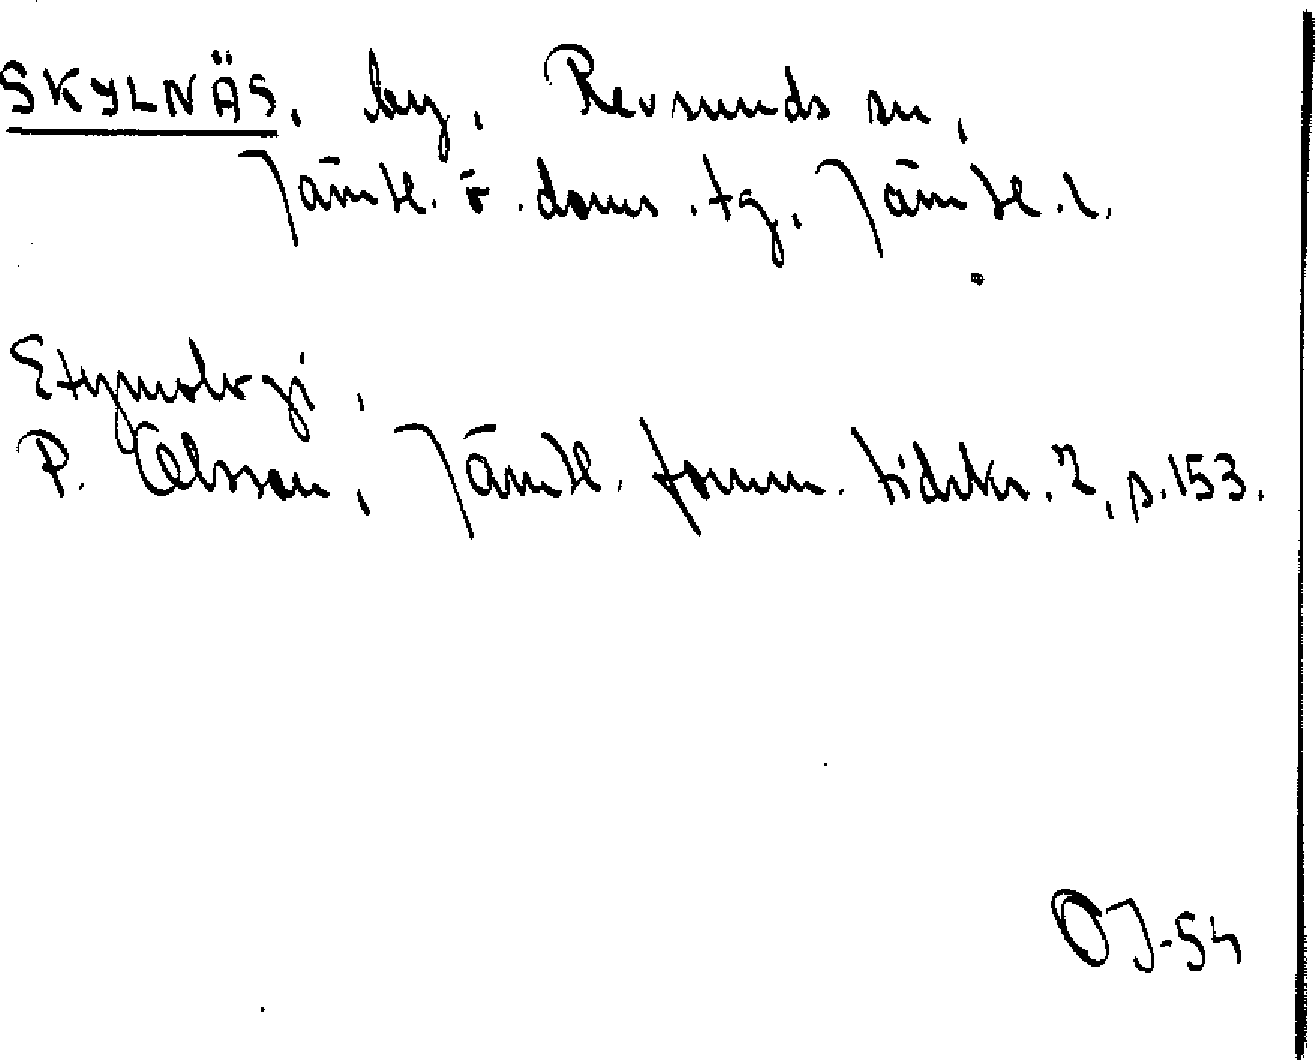 SKYLNÄS, by, Revsunds sn,
Jämtl. ö. doms. tg, Jämtl. l.
Etymologi,
P. Olsson, Jämtl. fornm. tidskr. 2, s. 153.
OJ-54